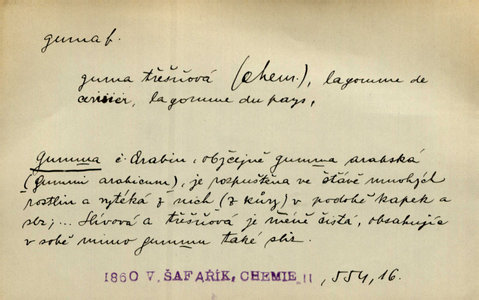 guma f.
guma třešňová (chem.), la gomme de
cerisier, la gomme du pays,
Gumma č. Arabin, obyčejně gumma arabská
(gummi arabicum), je rozpuštěna ve šťávě mnohých
rostlin a vytéká z nich (z kůry) v podobě kapek a
slz;... Slívová a třešňová je méně čistá, obsahujíc
v sobě mimo gummu také sliz.
1860 V. ŠAFAŘÍK, CHEMIE II, 554, 16.